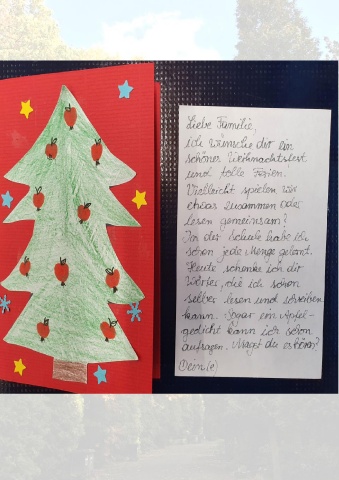 Liebe Familie,
ich wünsche dir ein
schönes Weihnachtsfest
und tolle Ferien.
Vielleicht spielen wir
etwas zusammen oder
lesen gemeinsam?
In der Schule habe ich
schon jede Menge gelernt.
Heute schenke ich dir
Wörter, die ich schon
selber lesen und schreiben
kann. Sogar ein Apfel-
gedicht kann ich schon
aufsagen. Magst du es hören?
Dein(e)